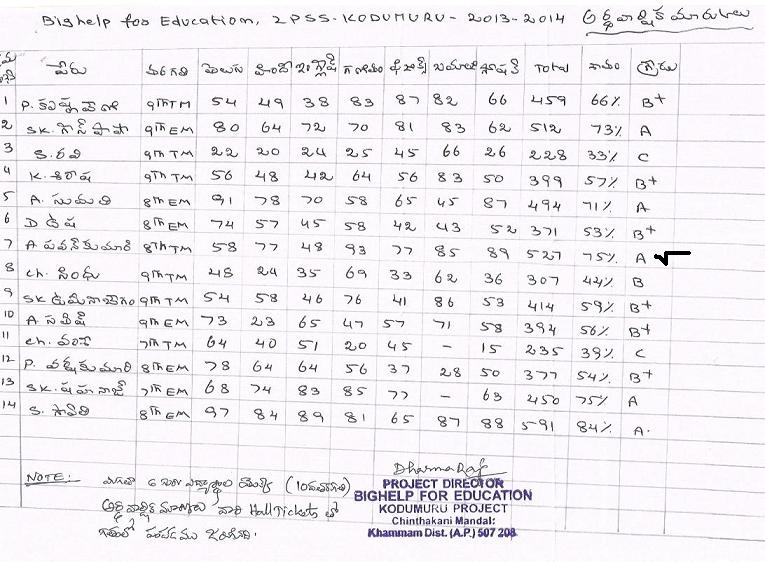 Bighelp for Education, ZPSS-KODUMURU-2013-2014 అర్థవార్షిక మార్కులు
పేరు తరగతి తెలుగు హిందీ ఇంగ్లీష్ గణితం Total శాతం గ్రేడు
1 P. 9th TM 54 49 38 83 87 82 66 459 66% B+
2 SK. 9th EM 80 64 72 70 81 83 62 512 73% A
3 S. రవి 9th TM 22 20 24 25 45 66 26 228 33% C
4 K. శిరీష 9th TM 56 48 42 64 56 83 50 399 57% B+
5 A. సుమతి 8th EM 91 78 70 58 65 45 87 494 71% A
6 D 8th EM 74 57 45 58 42 43 52 371 53% B+
7 A. పవన్ కుమార్ 8th TM 58 77 48 93 77 85 89 527 75% A ✓
8 Ch. సింధు 9th TM 48 24 35 69 33 62 36 307 44% B
9 SK. 9th TM 54 58 46 76 41 86 53 414 59% B+
10 A. 9th EM 73 23 65 47 57 71 58 394 56% B+
11 Ch. 7th TM 64 40 51 20 45 - 15 235 39% C
12 P. 8th EM 78 64 64 56 37 28 50 377 54% B+
13 SK. 7th EM 68 74 83 85 77 - 63 450 75% A
14 S. 8th EM 97 84 89 81 65 87 88 591 84% A.
NOTE: మిగతా 6 గురు విద్యార్థుల యొక్క (10వ తరగతి)
అర్థ వార్షిక మార్కులు వారి Hall Tickets తో
DharmaRaj
PROJECT DIRECTOR
BIGHELP FOR EDUCATION
KODUMURU PROJECT
Chinthakani Mandal:
Khammam Dist. (A.P.) 507 208